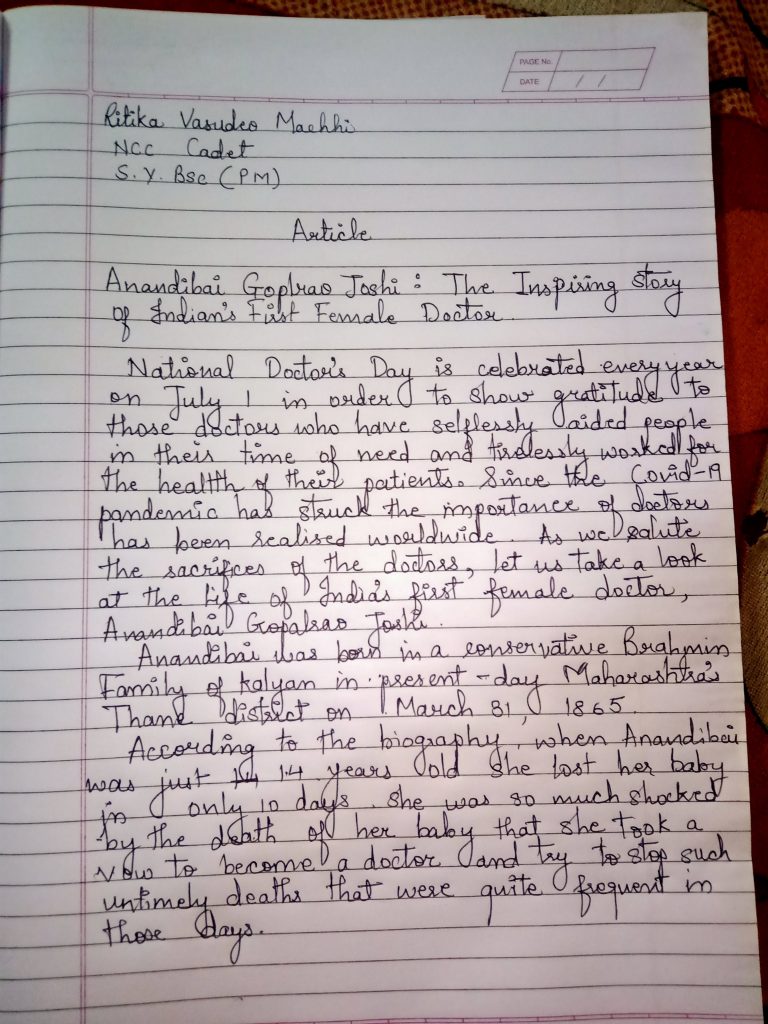 PAGE No.
DATE / /
Ritika Vasudeo Machhi
NCC Cadet
S. Y. Bsc (PM)
Article
Anandibai Goplrao Joshi : The Inspiring story
of Indian's First Female Doctor.
National Doctor's Day is celebrated every year
on July 1 in order to show gratitude to
those doctors who have selflessly aided people
in their time of need and tirelessly worked for
the healtth of their patients. Since the Covid-19
pandemic has struck the importance of doctors
has been realised worldwide. As we salute
the sacrifices of the doctors, let us take a look
at the life of India's first female doctor,
Anandibai Gopalrao Joshi.
Anandibai was born in a conservative Brahmin
Family of Kalyan in present-day Maharashtra's
Thane district on March 31, 1865.
According to the biography, when Anandibai
was just 14 years old she lost her baby
in only 10 days. She was so much shocked
by the death of her baby that she took a
vow to become a doctor and try to stop such
untimely deaths that were quite frequent in
those days.